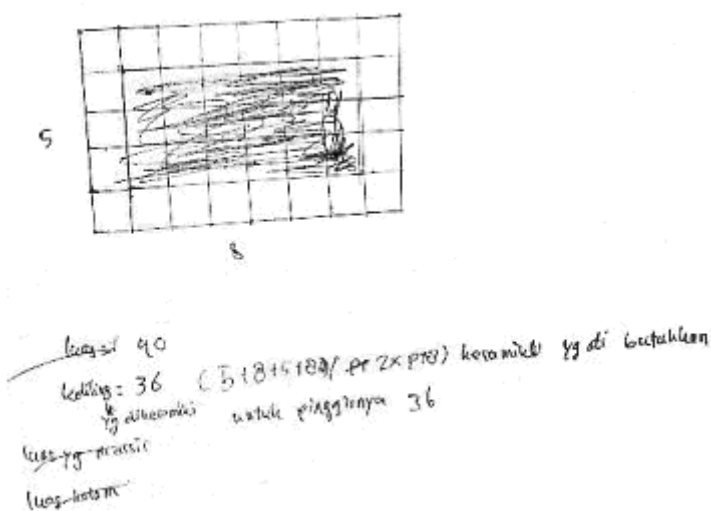 5
8
luas: 40
keliling = 36 (5+8+5+8 / 2x p+l) keramik yg di butuhkan
yg dikeramiki untuk pinggirnya 36
luas yg
luas kolam